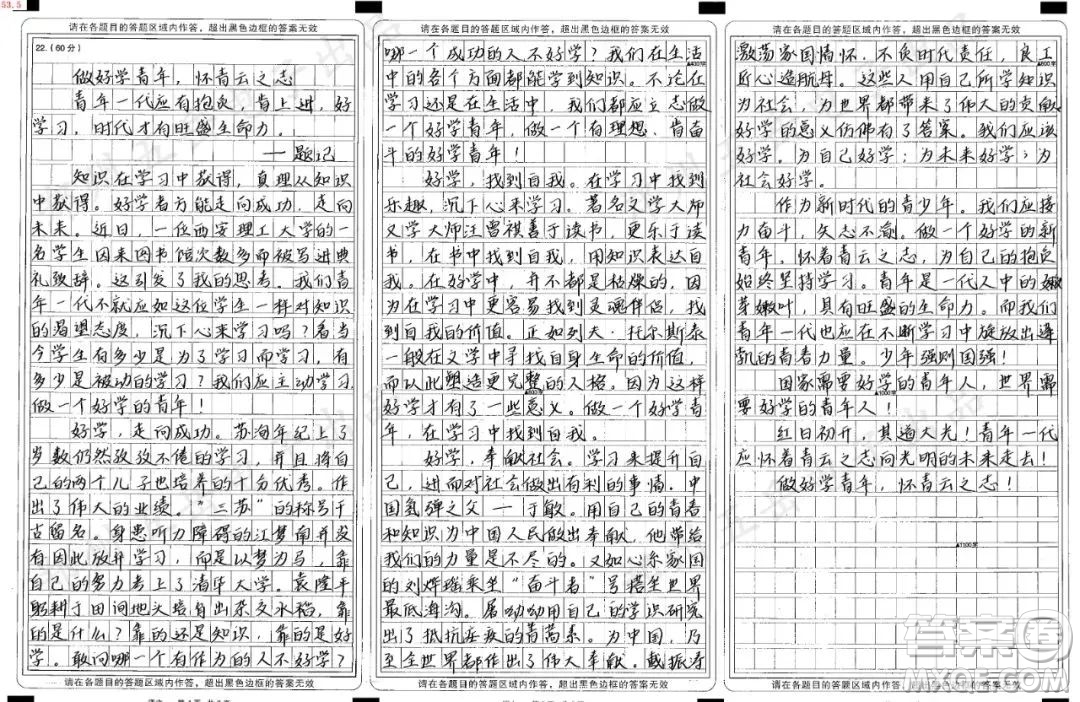 53.5
请在各题目的答题区域内作答，超出黑色边框的答案无效
22.(60分)
做好学青年，怀青云之志
青年一代应有抱负，肯上进，好
学习，时代才有旺盛生命力。
——题记
知识在学习中获得，真理从知识
中获得。好学者方能走向成功，走向
未来。近日，一位西安理工大学的一
名学生因来图书馆次数多而被写进典
礼致辞。这引发了我的思考。我们青
年一代不就应如这位学生一样对知识
的渴望态度，沉下心来学习吗？看当
今学生有多少是为了学习而学习，有
多少是被动的学习？我们应主动学习，
做一个好学的青年！
好学，走向成功。苏洵年纪上了
岁数仍然孜孜不倦的学习，并且将自
己的两个儿子也培养的十分优秀。作
出了伟大的业绩。“三苏”的称号千
古留名。身患听力障碍的江梦南并没
有因此放弃学习，而是以梦为马，靠
自己的努力考上了清华大学。袁隆平
躬耕于田间地头培育出杂交水稻，靠
的是什么？靠的还是知识，靠的是好
学。敢问哪一个有作为的人不好学？
请在各题目的答题区域内作答，超出黑色边框的答案无效
请在各题目的答题区域内作答，超出黑色边框的答案无效
哪一个成功的人不好学？我们在生活
中的各个方面都能学到知识。不论在
学习还是在生活中，我们都应立志做
一个好学青年，做一个有理想、肯奋
斗的好学青年！
好学，找到自我。在学习中找到
乐趣，沉下心来学习。著名文学大师
文学大师汪曾祺善于读书，更乐于读
书，在书中找到自我，用知识表达自
我。在好学中，并不都是枯燥的，因
为在学习中更容易找到灵魂伴侣，找
到自我的价值。正如列夫·托尔斯泰
一般在文学中寻找自身生命的价值，
而以此塑造更完整的人格。因为这样
▲800字
好学才有了一些意义。做一个好学青
年，在学习中找到自我。
好学，奉献社会。学习来提升自
己，进而对社会做出有利的事情。中
国氢弹之父——于敏。用自己的青春
和知识为中国人民做出奉献，他带给
我们的力量是不尽的。又如心系家国
的刘烨瑶乘坐“奋斗者”号搭坐世界
最低海沟。屠呦呦用自己的学识研究
出了抵抗疟疾的青蒿素。为中国，乃
至全世界都作出了伟大奉献。戴振涛
请在各题目的答题区域内作答，超出黑色边框的答案无效
请在各题目的答题区域内作答，超出黑色边框的答案无效
激荡家国情怀，不负时代责任，良工
匠心造航母。这些人用自己所学知识
为社会，为世界都带来了伟大的贡献
好学的意义仿佛有了答案。我们应该
好学。为自己好学；为未来好学；为
社会好学。
作为新时代的青少年。我们应接
力奋斗，矢志不渝。做一个好学的新
青年，怀着青云之志，为自己的抱负
始终坚持学习。青年是一代人中的嫩
芽嫩叶，具有旺盛的生命力。而我们
青年一代也应在不断学习中旋放出逢
凯的青春力量。少年强则国强！
国家需要好学的青年人，世界需
▲1000字
要好学的青年人！
红日初升，其道大光！青年一代
应怀着青云之志向光明的未来走去！
做好学青年，怀青云之志！
▲1100字
请在各题目的答题区域内作答，超出黑色边框的答案无效
答案圈
MXQE.COM